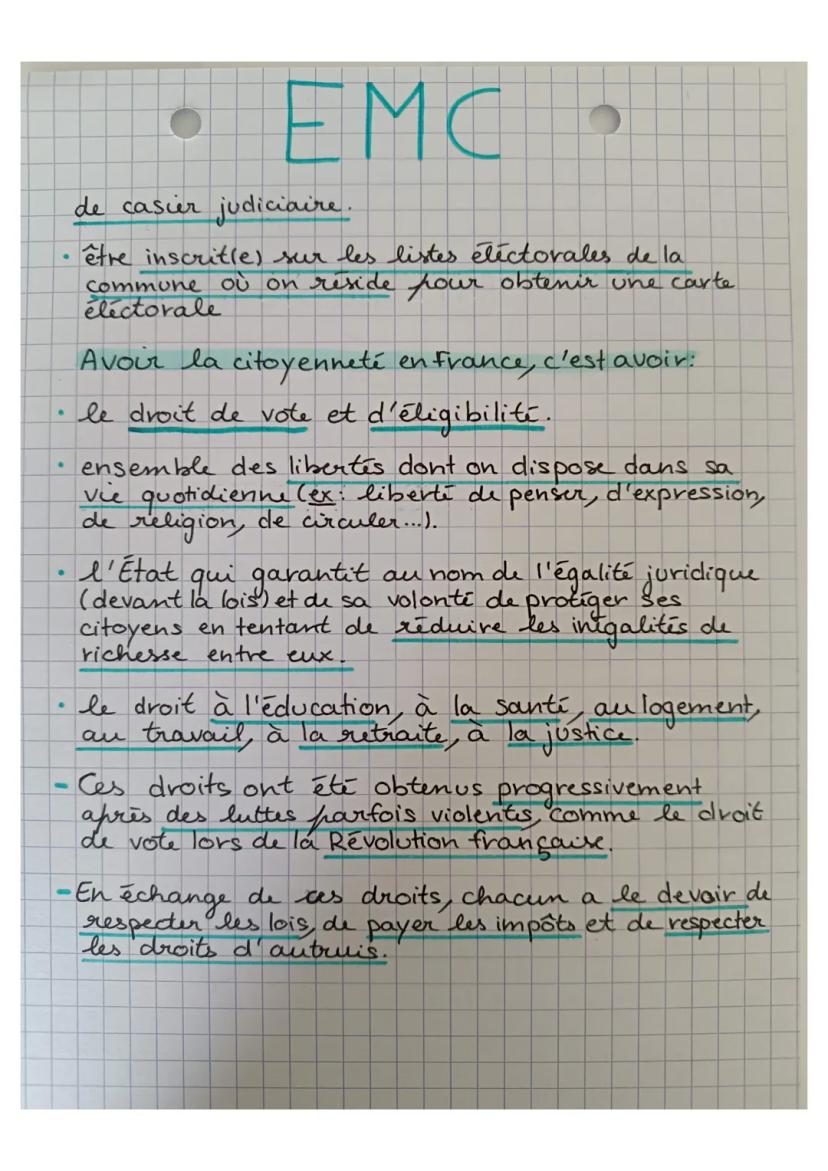 EMC
de casier judiciaire.
• être inscrit(e) sur les listes éléctorales de la
commune où on réside pour obtenir une carte
éléctorale
Avoir la citoyenneté en france, c'est avoir:
• le droit de vote et d'éligibilité.
• ensemble des libertés dont on dispose dans sa
vie quotidienne (ex: liberté de penser, d'expression,
de religion, de circuler...).
• l'État qui garantit au nom de l'égalité juridique
(devant la lois) et de sa volonté de protéger ses
citoyens en tentant de réduire les inégalités de
richesse entre eux.
• le droit à l'éducation, à la santé, au logement,
au travail, à la retraite, à la justice.
- Ces droits ont été obtenus progressivement
après des luttes parfois violentes, comme le droit
de vote lors de la Révolution française.
- En échange de ces droits, chacun a le devoir de
respecter les lois, de payer les impôts et de respecter
les droits d'autruis.